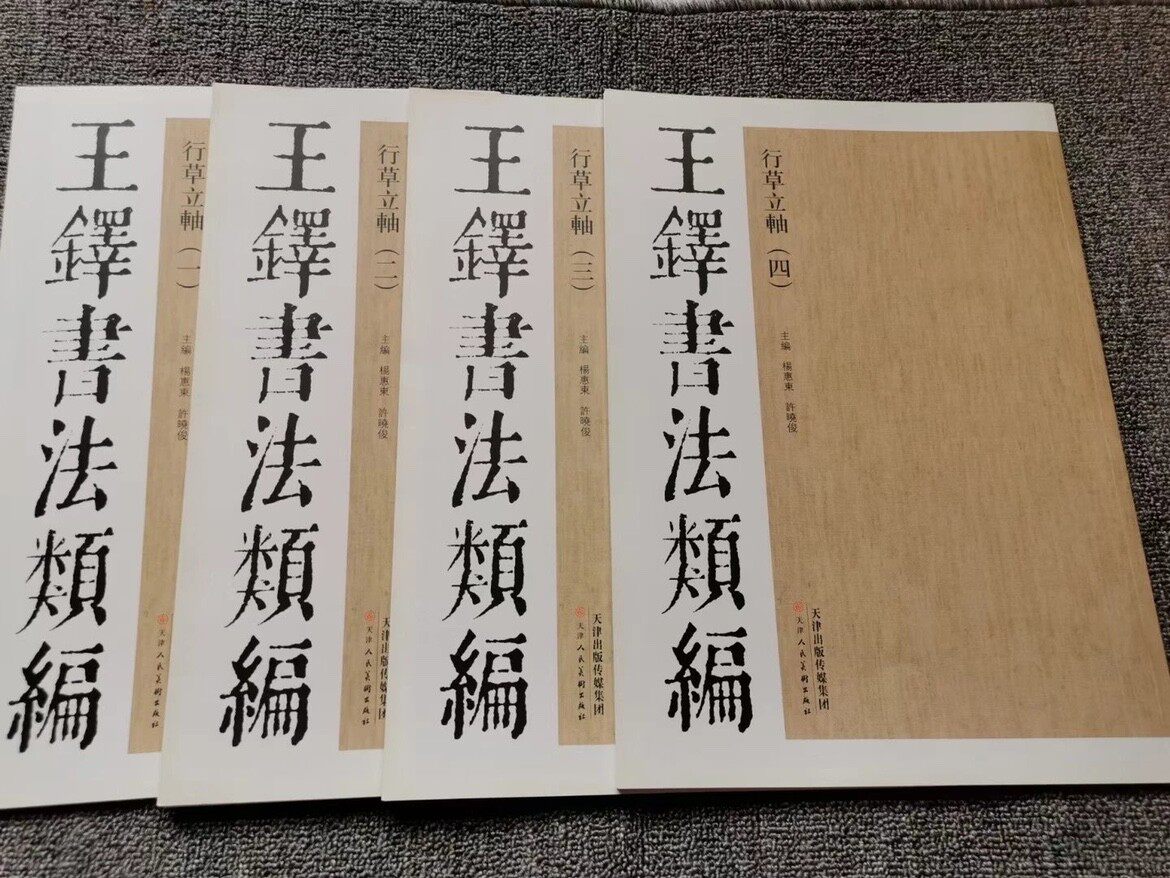 王鐸書法類編
行草立軸（一）
主編 楊惠東 許曉俊
天津人民美術出版社
王鐸書法類編
行草立軸（二）
主編 楊惠東 許曉俊
天津出版传媒集团
天津人民美術出版社
王鐸書法類編
行草立軸（三）
主編 楊惠東 許曉俊
天津出版传媒集团
天津人民美術出版社
王鐸書法類編
行草立軸（四）
主編 楊惠東 許曉俊
天津出版传媒集团
天津人民美術出版社